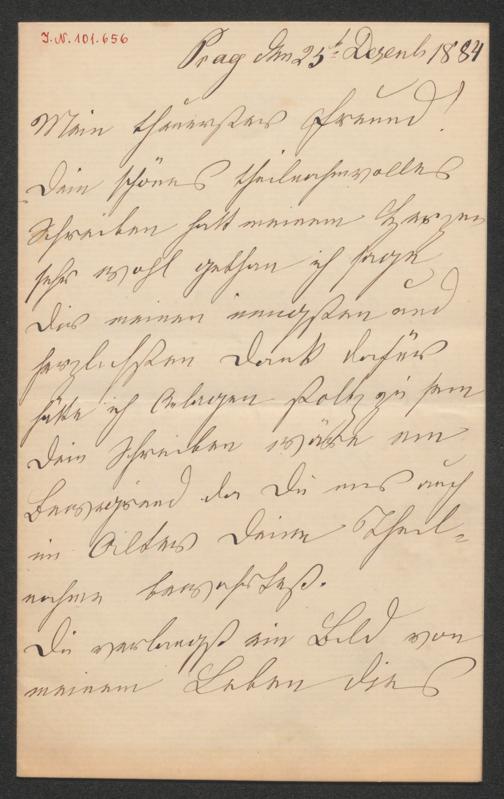 I.N. 101.656
Prag den 25t Dezemb 1884
Mein theuerster Freund!
Dein schönes theilnahmvolles
Schreiben hatt meinem Herzen
sehr wohl gethan ich sage
Dir meinen innigsten und
herzlichsten Dank dafür
hätte ich Anlagen stoltz zu sein
Dein Schreiben wäre ein
Beweegrund da Du mir auch
im Alter Deine Theil=
nahme bewahrtest.
Du verlangst ein Bild von
meinem Leben dies